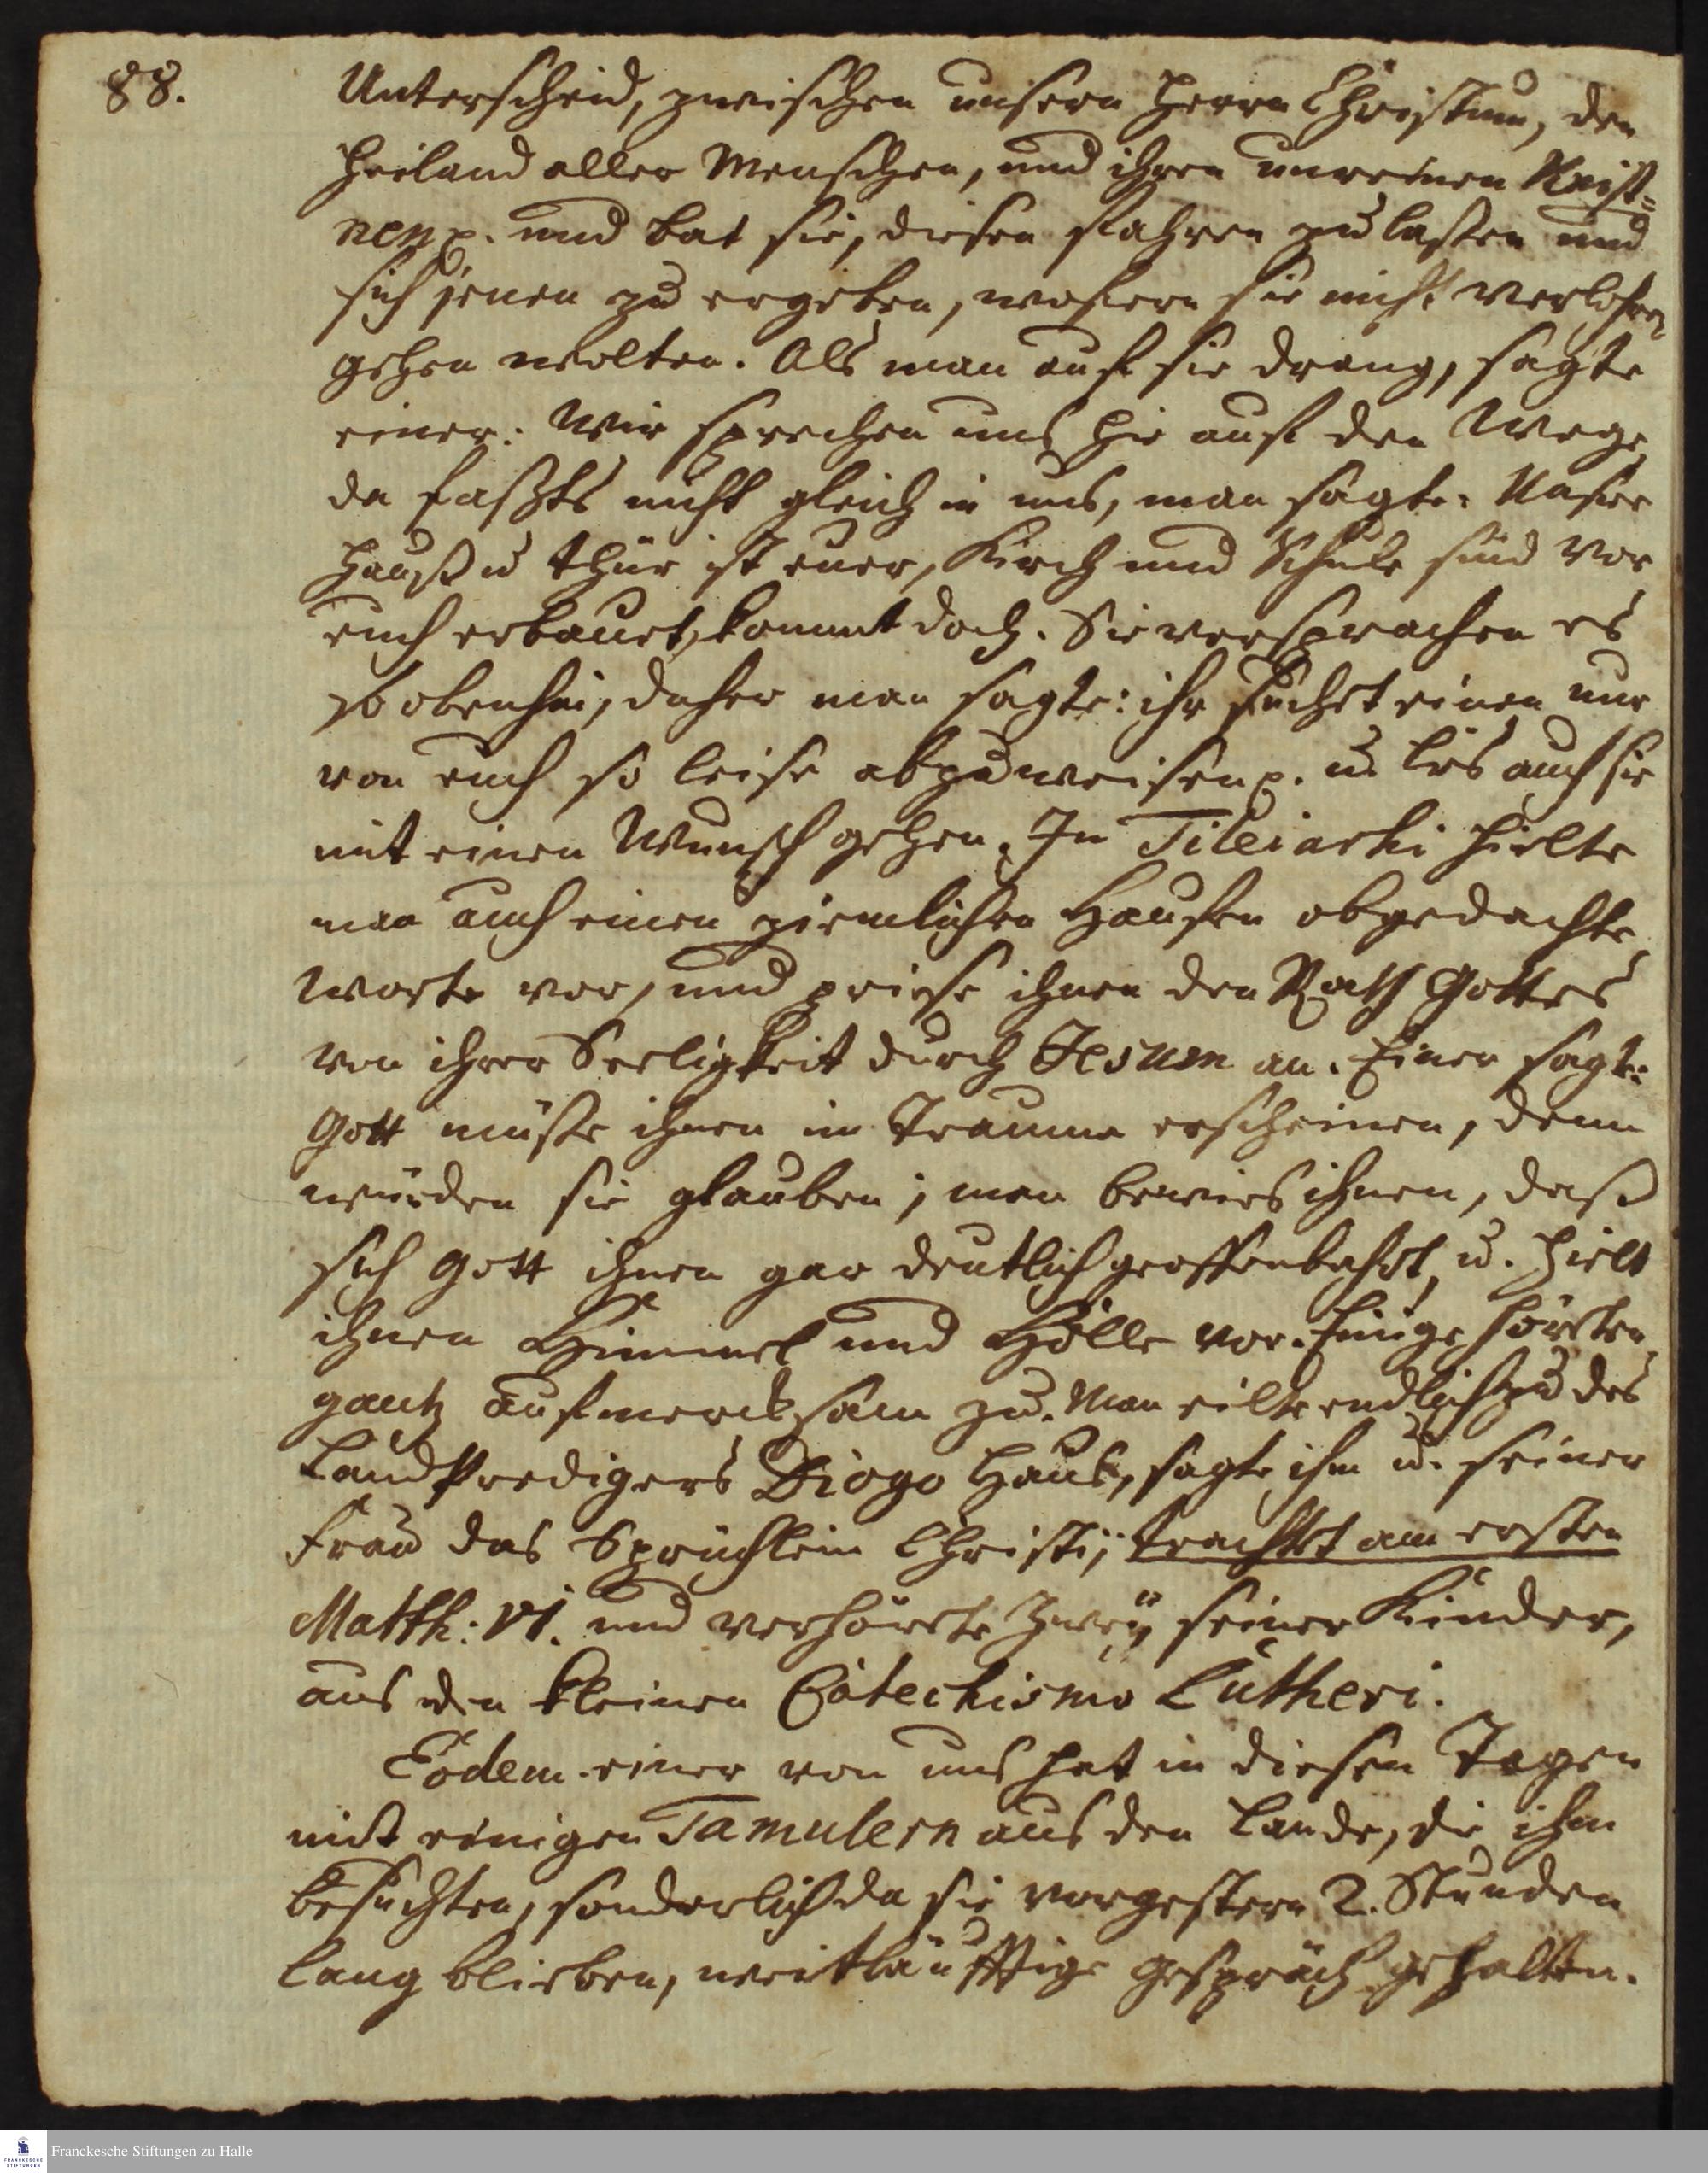 88.
Unterscheid, zwischen unsern Herrn Christum, den
Heiland aller Menschen, und ihren unreinen Krist=
nen p. und bat sie, diesen fahren zu laßen und
sich jenen zu ergeben, wofern sie nicht verlohren
gehen wolten. Als man auf sie drang, sagte
einer: Wir sprechen uns hie auf den Wege,
da faßts nicht gleich in uns, man sagte: Unser
Hauß u Thür ist euer, Kirch und Schule sind vor
euch erbauet, kommt doch. Sie versprachen es
so obenhin, daher man sagte: ihr suchet einen nur
von euch so leise abzuweisen p. u. lies auch sie
mit einen Wunsch gehen. In Tileiarhi hielte
man auch einen ziemlichen Hauffen obgedachte
Worte vor, und priese ihnen den Rath Gottes
von ihrer Seeligkeit durch Jesum an. Einer sagte:
Gott müste ihnen im Traume erscheinen, denn
würden sie glauben; man bewies ihnen, daß
sich Gott ihnen gar deutlich geoffenbahrt, u. hielt
ihnen Himmel und Hölle vor. Einige hörten
gantz aufmercksam zu. Man eilte endlich zu des
Landpredigers Diogo Hauß, sagte ihm u. seiner
Frau das Sprüchlein Christi; trachtet am ersten
Matth: VI. und verhörte zwey seiner Kinder,
aus den kleinen Catechismo Lutheri.
Eodem. einer von uns hat in diesen Tagen
mit einigen Tamulern aus den Lande, die ihm
besuchten, sonderlich da sie vorgestern 2. Stunden
lang blieben, weitläufftige Gespräch gehalten.
Franckesche Stiftungen zu Halle